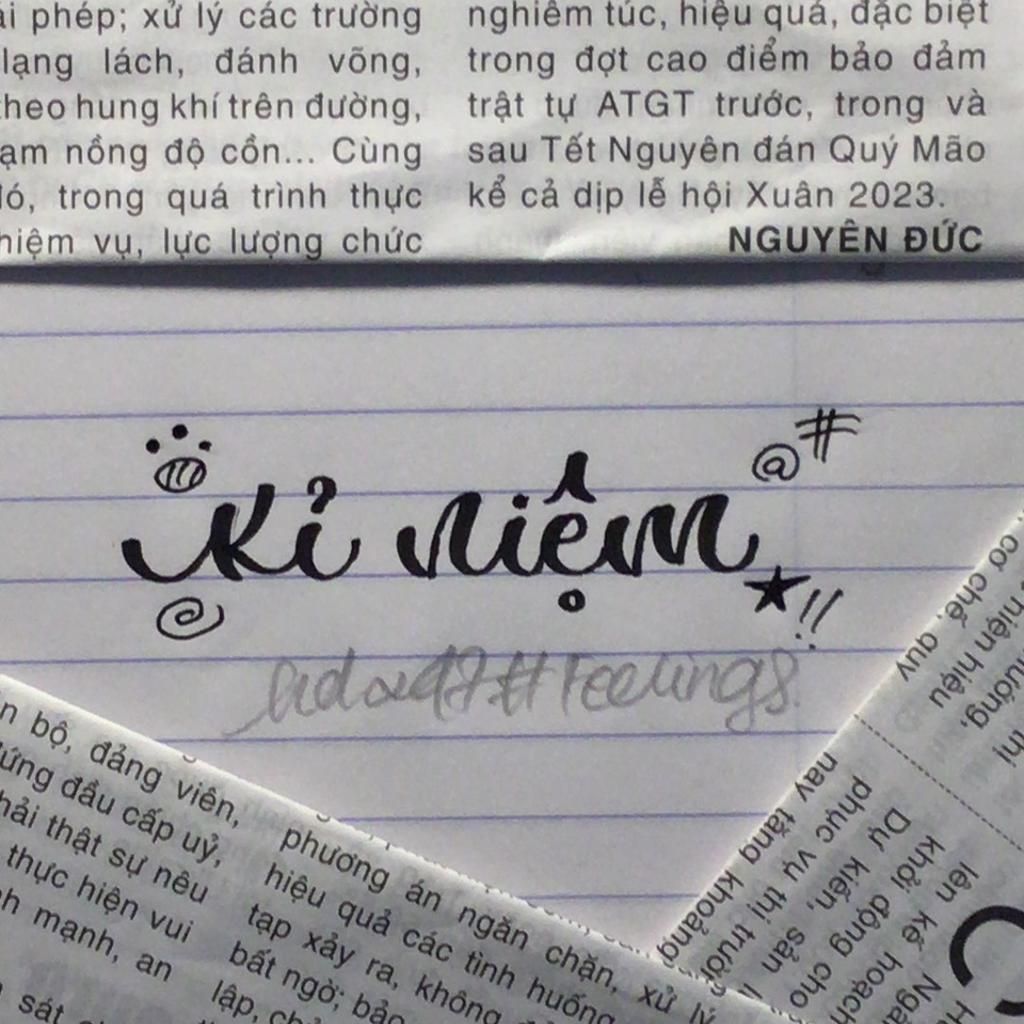 ải phép; xử lý các trường
lạng lách, đánh võng,
theo hung khí trên đường,
ạm nồng độ cồn... Cùng
đó, trong quá trình thực
hiệm vụ, lực lượng chức
nghiêm túc, hiệu quả, đặc biệt
trong đợt cao điểm bảo đảm
trật tự ATGT trước, trong và
sau Tết Nguyên đán Quý Mão
kể cả dịp lễ hội Xuân 2023.
NGUYÊN ĐỨC
@#
Kỉ niệm
!!
#Feelings
n bộ, đảng viên,
ứng đầu cấp uỷ,
hải thật sự nêu
thực hiện vui
nh mạnh, an
sát
phương án ngăn chặn, xử lý
hiệu quả các tình huống
tạp xảy ra, không
bất ngờ; bảo
lập,
cơ chế, quy
hiện hiệu
hướng,
thị
nay tăng khoảng
phục vụ thị trườ
Dự kiến, sản
khởi động cho
lên kế hoạch
C